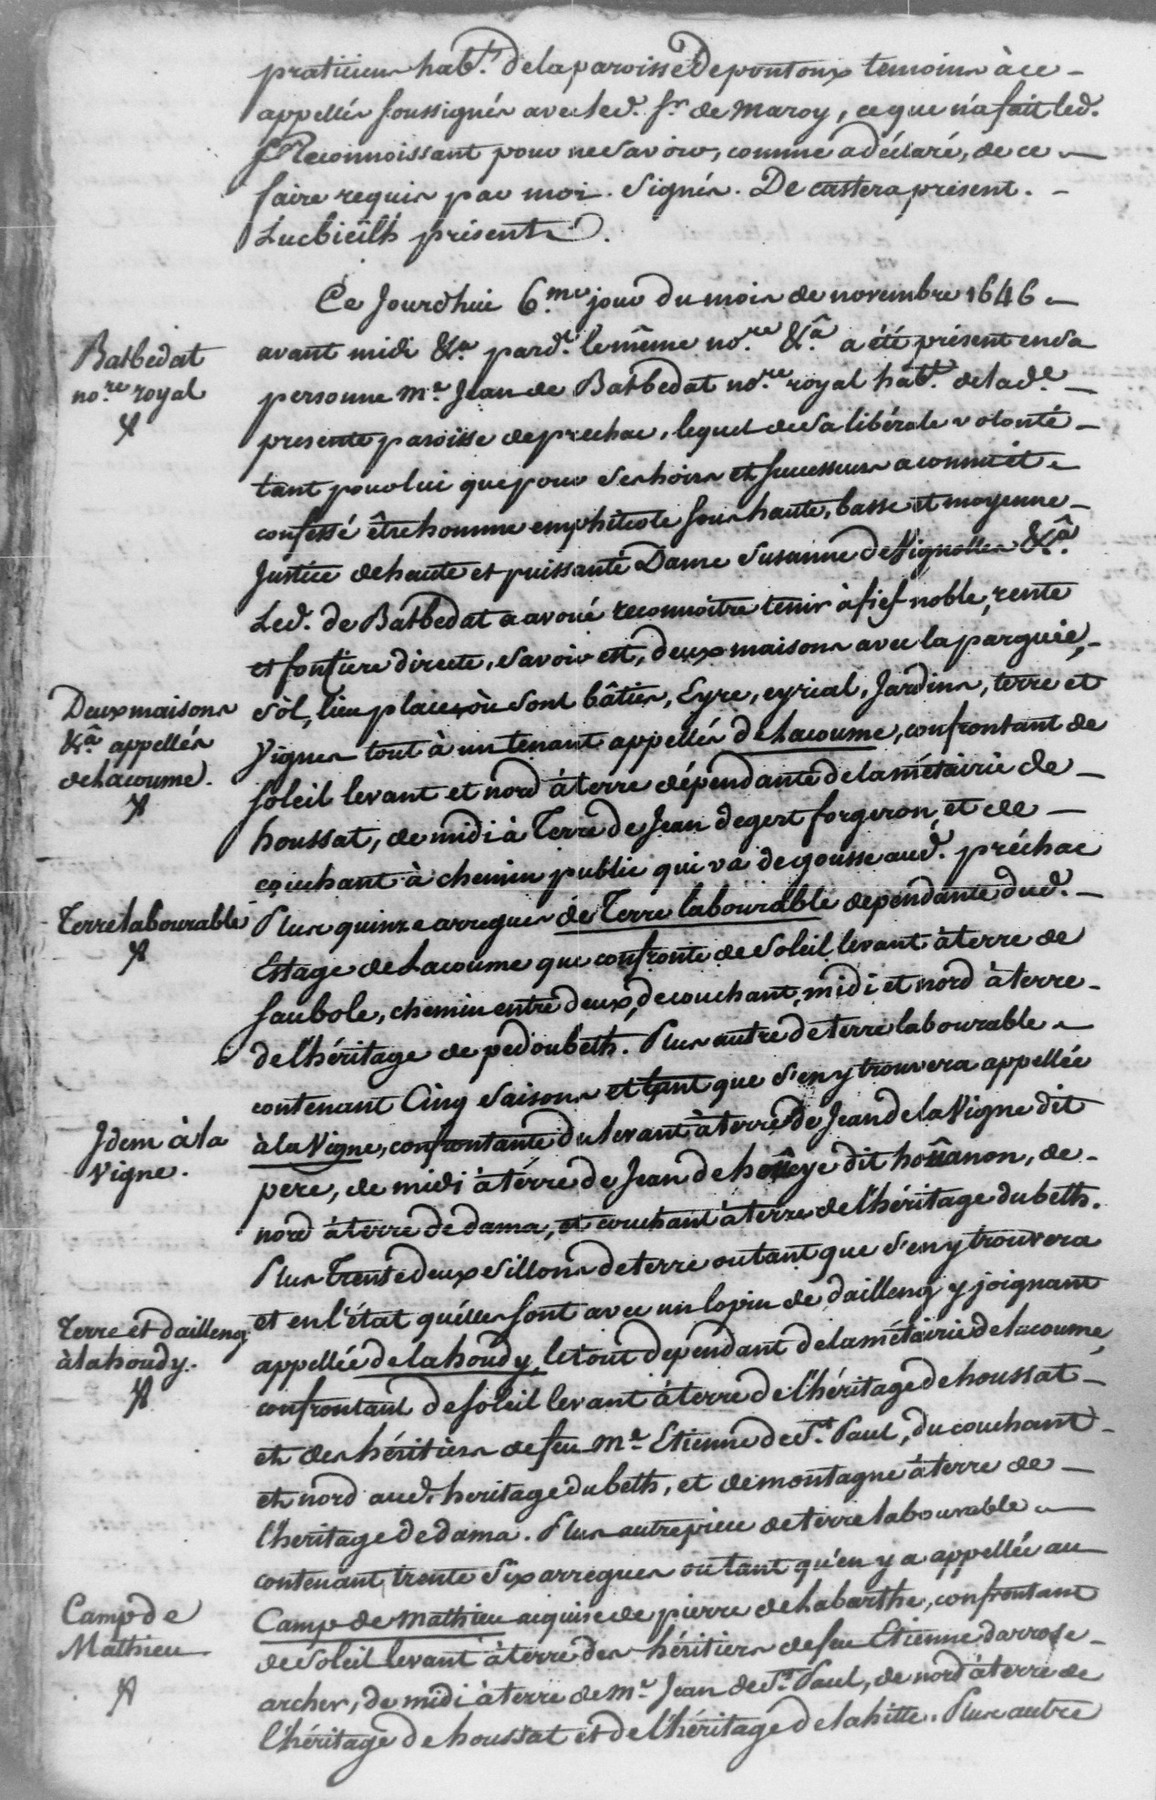 praticiens hab.ᵗˢ de la paroisse de pontonx temoins à ce –
appellés soussignés avec led. sʳ de Maroy, ce que n'a fait led.
Reconnoissant pour ne savoir, comme a déclaré, de ce –
faire requis par moi. Signés. De castera présent. –
Lucbieilh présent.
Ce Jourd'hui 6.ᵐᵉ jour du mois de novembre 1646 –
Batbedat
no.ʳᵉ royal
avant midi &ᵃ. pard.ᵗ le même no.ʳᵉ &ᵃ. a été présent en sa
personne Mᵉ Jean de Batbedat no.ʳᵉ royal hab.ᵗ de lad.ᵉ –
presente paroisse de prechac, lequel de sa libérale volonté –
tant pour lui que pour ses hoirs et successeurs a connu et –
confessé être homme emphiteote sous haute, basse et moyenne –
Justice de haute et puissante Dame Susanne de Vignolles &ᵃ.
Led. de Batbedat a avoué reconnoitre tenir à fief noble, rente
et fonsiere directe, savoir est, deux maisons avec la parguie, –
Deux maisons
&ᵃ appellés
de Lacoume.
sol, lieu place où sont bâties, Eyre, eyrial, Jardins, terre et
Vignes tout à un tenant appellés de Lacoume, confrontant de
soleil levant et nord à terre dépendante de la métairie de –
houssat, de midi à Terre de Jean degert forgeron, et de –
couchant à chemin public qui va de gousse aud. préchac
Terre labourable
Plus quinze arregues de Terre labourable dependante dud. –
Estage de Lacoume que confronte de soleil levant à terre de
saubole, chemin entre deux, de couchant, midi et nord à terre –
de l'héritage de pedoubeth. Plus autre de terre labourable –
contenant Cinq saisons et tant que s'en y trouvera appellée
Idem à la
Vigne.
à la Vigne, confrontante du levant à terre de Jean de la Vigne dit
pere, de midi à térre de Jean de houeye dit houanon, de –
nord à terre de dama, et couchant à terre de l'héritage dubeth.
Plus Trente deux sillons de terre ou tant que s'en y trouvera
et en l'état qu'élles sont avec un lopin de dailleng y joignant
Terre et dailleng
à lahoudy.
appellée de lahoudy, le tout dependant de la métairie de lacoume,
confrontant de soleil levant à terre de l'héritage de houssat –
et des héritiers de feu Mᵉ Etienne de Sᵗ Paul, du couchant –
et nord aud. heritage dubeth, et de montagne à terre de –
l'heritage de dama. Plus autre piece de terre labourable –
contenant trente six arregues ou tant qu'en y a appellée au
Camp de
Mathieu
Camp de Mathieu acquise de pierre de Labarthe, confrontant
de soleil levant à terre des héritiers de feu Etienne darrose –
archer, de midi à terre de Mᵉ Jean de Sᵗ Paul, de nord à terre de
l'héritage de houssat et de l'héritage de lahitte. Plus autre